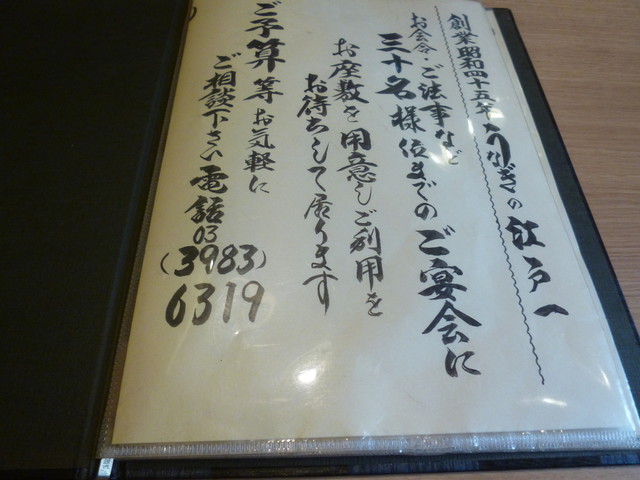 創業昭和四十五年うなぎの江戸一
お会合・ご法事など
三十名様位までのご宴会に
お座敷を用意しご利用を
お待ちして居ります
ご予算等お気軽に
ご相談下さい電話03
(3983)
6319